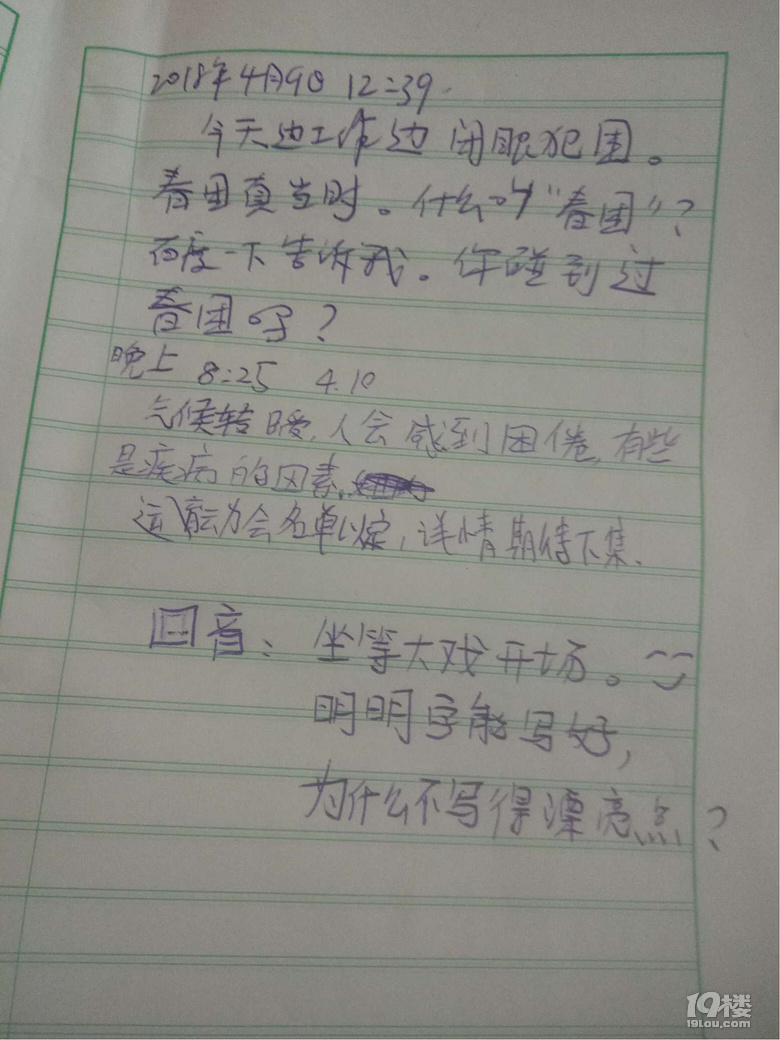 2018年4月9日 12:39.
今天边工作边闭眼犯困。
春困真当时。什么叫“春困”？
百度一下告诉我。你碰到过
春困吗？
晚上 8:25 4.10
气候转暖,人会感到困倦,有些
是疾病的因素.
运动会名单以定,详情期待下集.
回音：坐等大戏开场。
明明字能写好，
为什么不写得漂亮点？
19楼
19lou.com